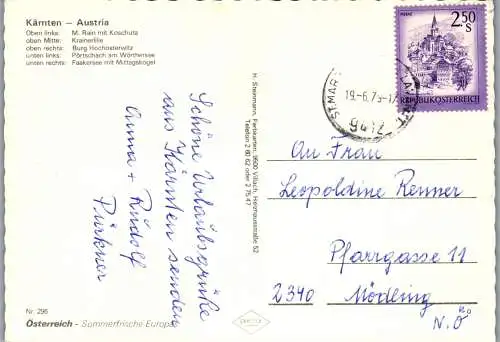 Kärnten – Austria
Oben links: M. Rain mit Koschuta
oben Mitte: Krainerlilie
oben rechts: Burg Hochosterwitz
unten links: Pörtschach am Wörthersee
unten rechts: Faakersee mit Mittagskogel
Schöne Urlaubsgrüße
aus Kärnten senden
Anna + Rudolf
Pürkner
Nr. 296
Österreich - Sommerfrische Europas
H. Steinmann, Farbkarten, 9500 Villach, Heidhausstraße 52
Telefon 2 60 62 oder 2 75 47
2.50
S
MURAU
REPUBLIK ÖSTERREICH
ST. MAR
19.-6.79-17
9412
An Frau
Leopoldine Renner
Pfarrgasse 11
2340 Mödling
N.Ö